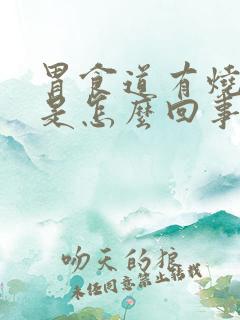 胃食道有燒
是怎麼回事
吻天的狼
未经同意禁止转载